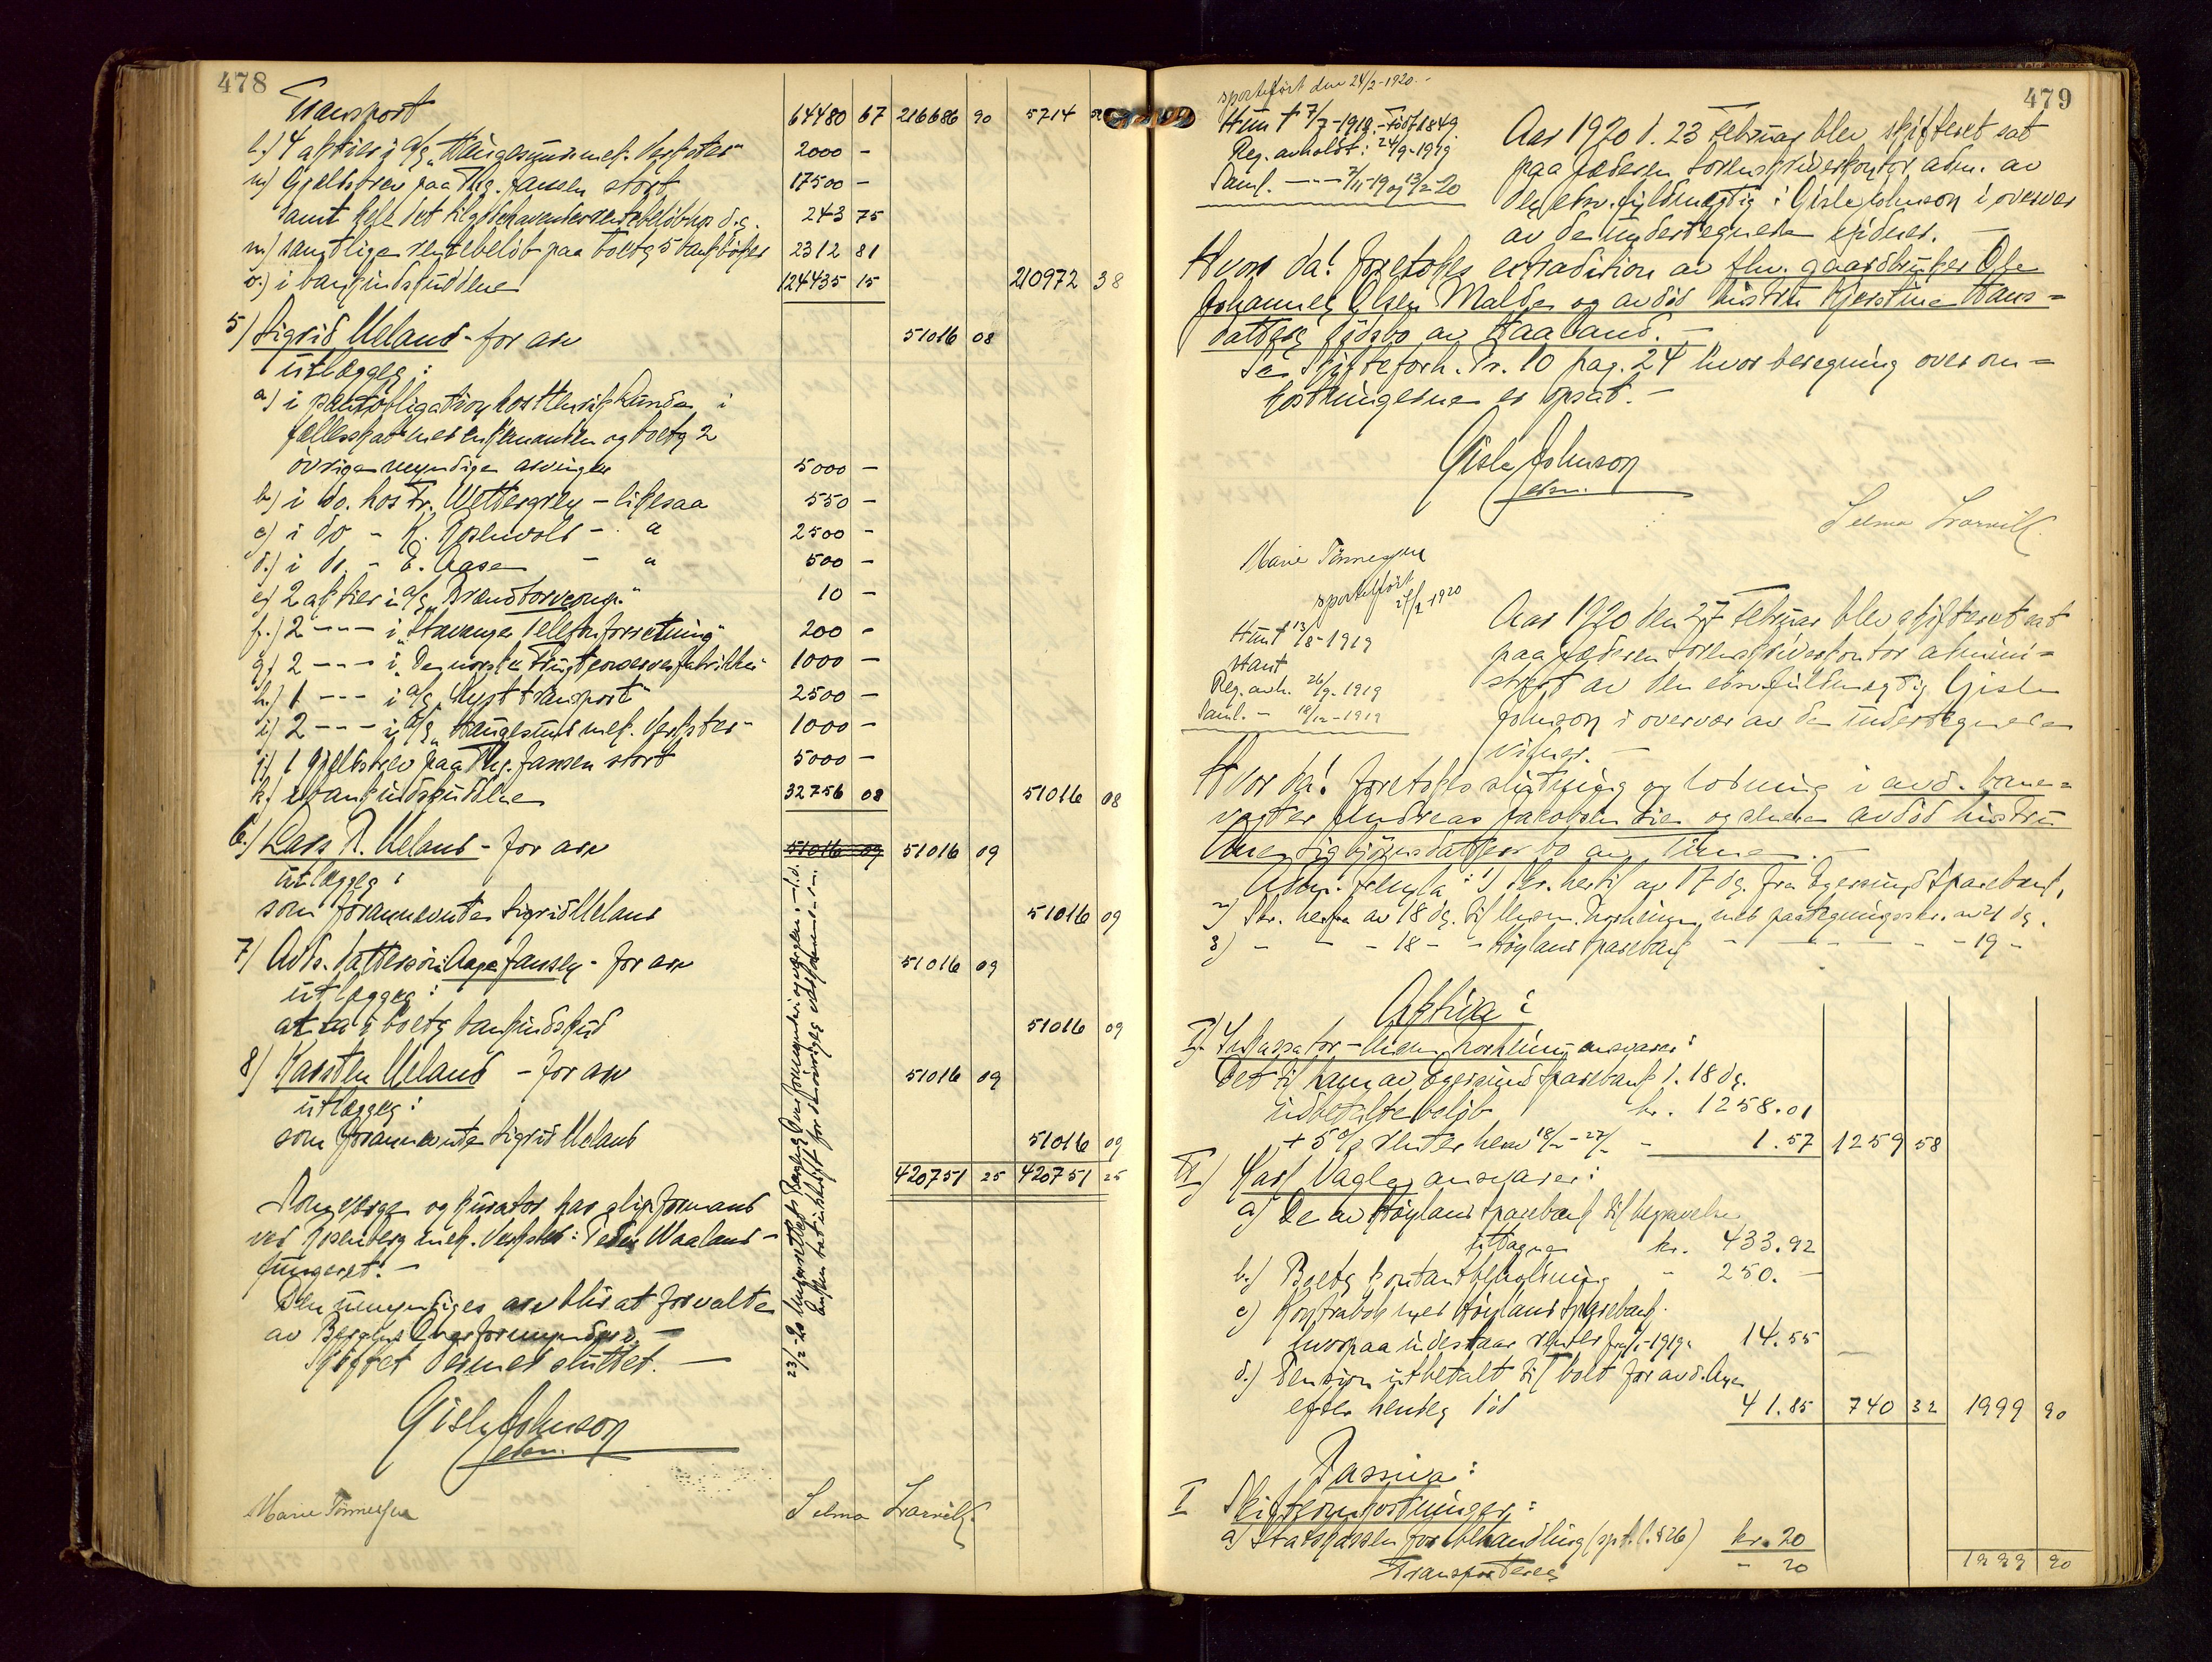 478
Transport 64480 67 216686 90 5714
l.) 4 aktier i A/S "Haugesunds mek. Verksted" 2000 -
m) Gjeldsbrev paa Thg. Jansen stort 17500 -
samt hele det tilgodehavende rentebeløb 243 75
n) samtlige rentebeløb paa boets 5 bankbøker 2312 81
o.) i bankindskuddene 124435 15 210972 38
5) Sigrid Meland - for arv 51016 08
utlægges:
a) i pantobligation hos Henrik Lunde i
fællesskap med enkemanden og boets 2
øvrige myndige arvinger 5000 -
b) i do. hos Fr. Wettergren - likesaa 550 -
c) i do - K. Rosenvold - " 2500 -
d.) i do. - E. Aase - " 500 -
e) 2 aktier i A/S "Brændtorvcomp." 10 -
f.) 2 --- i "Stavanger Telefonforretning" 200 -
g) 2 --- i "Den norske Frugtconservesfabrikk" 1000 -
h.) 1 --- i A/S "Kysttransport" 2500 -
i) 2 --- i A/S "Haugesunds mek. Verksted" 1000 -
j) 1 Gjeldsbrev paa Thg. Jansen stort 5000 -
k.) i bankindskuddene 32756 08 51016 08
6.) Lars R. Meland - for arv 51016 09 51016 09
utlægges:
som forannævnte Sigrid Meland 51016 09
7) Avds. dattersøn Aage Jansen - for arv 51016 09
utlægges:
at ta i boets bankindskud 51016 09
8) Karsten Meland - for arv 51016 09
utlægges:
som forannævnte Sigrid Meland 51016 09
420751 25 420751 25
Som verge og kurator har slipformand
ved Rosenberg mek. Verksted: Peder Waaland
fungeret. -
Den umyndiges arv blir at forvalte
av Bergens Overformynderi. -
Skiftet dermed sluttet. -
Gisle Johnson
edsv.
Marie Tønnessen Selma Svarvik
479
sporteført den 24/2-1920. -
Hun † 7/7-1919. - Født 1849.
Reg. avholdt: 24/9-1919
Saml. --- 7/11-19 og 13/2-20
Aar 1920 d. 23 Februar blev skifteret sat
paa Jæderen Sorenskriverkontor adm. av
den edsv. fuldmægtig: Gisle Johnson i overvær
av de undertegnede vidner. -
Hvor da! foretokes extradition av fhv. gaardbruker Ole
Johannes Olsen Malde og avdød hustru Kjerstine Hans-
datters fødsbo av Haaland. -
Se Skifteforh. Pr. 10 pag. 24 hvor beregning over om-
kostningerne er opsat. -
Gisle Johnson
edsv.
Selma Svarvik
Marie Tønnessen
sporteført
28/2 1920
Hun † 13/8-1919
Reg. avh. 26/9-1919
Saml. - 18/12-1919
Aar 1920 den 27 Februar blev skifteret sat
paa Jæderen Sorenskriverkontor admini-
streret av den edsv. fuldmægtig Gisle
Johnson i overvær av de undertegnede
vidner. -
Hvor da! foretokes slutning og lodning i avd. bane-
vogter Andreas Jakobsen og senere avdød hustru
Ane Sigbjørnsdatters bo av Time. -
Adm. fremla: 1) Skr. hertil av 17 ds. fra Egersund Sparebank,
2) Skr. herfra av 18 ds. til med paategningsskr. av 21 ds.
3) - - - 18 - - Høyland Sparebank - - - - - 19 -
Aktiva:
I) Inkassator ansvarer:
Det til ham av Egersund Sparebank d. 18 ds.
utbetalte beløb kr. 1258.01
+ 5% renter herav 18/2-27/2 - 1.57 1259 58
II) Karl Vagle ansvarer:
a) De av Høyland Sparebank til begravelse
uttagne kr. 433.92
b.) Boets kontantbeholdning - 250. -
c) Kontrabok med Høyland Sparebank.
hvorpaa indestaar renter fra 1/1-1919. 14.55
d.) Pension utbetalt til boet for avd. Ane
efter hendes død 41.85 740 32 1999 90
Passiva:
I Skifteomkostninger:
a) Statskassen for behandling (sp. l. §26) kr. 20
Transporteres - 20 1999 90